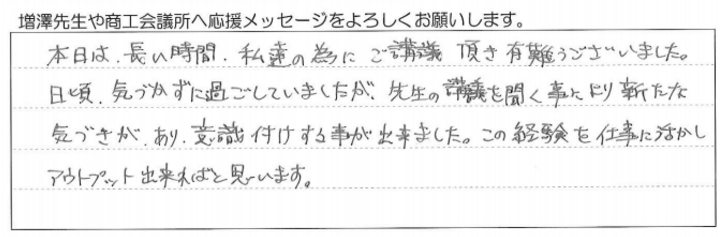 増澤先生や商工会議所へ応援メッセージをよろしくお願いします。
本日は、長い時間、私達の為にご講議頂き有難うございました。
日頃、気づかずに過ごしていましたが、先生の講議を聞く事により新たな
気づきが、あり、意識付けする事が出来ました。この経験を仕事に活かし
アウトプット出来ればと思います。